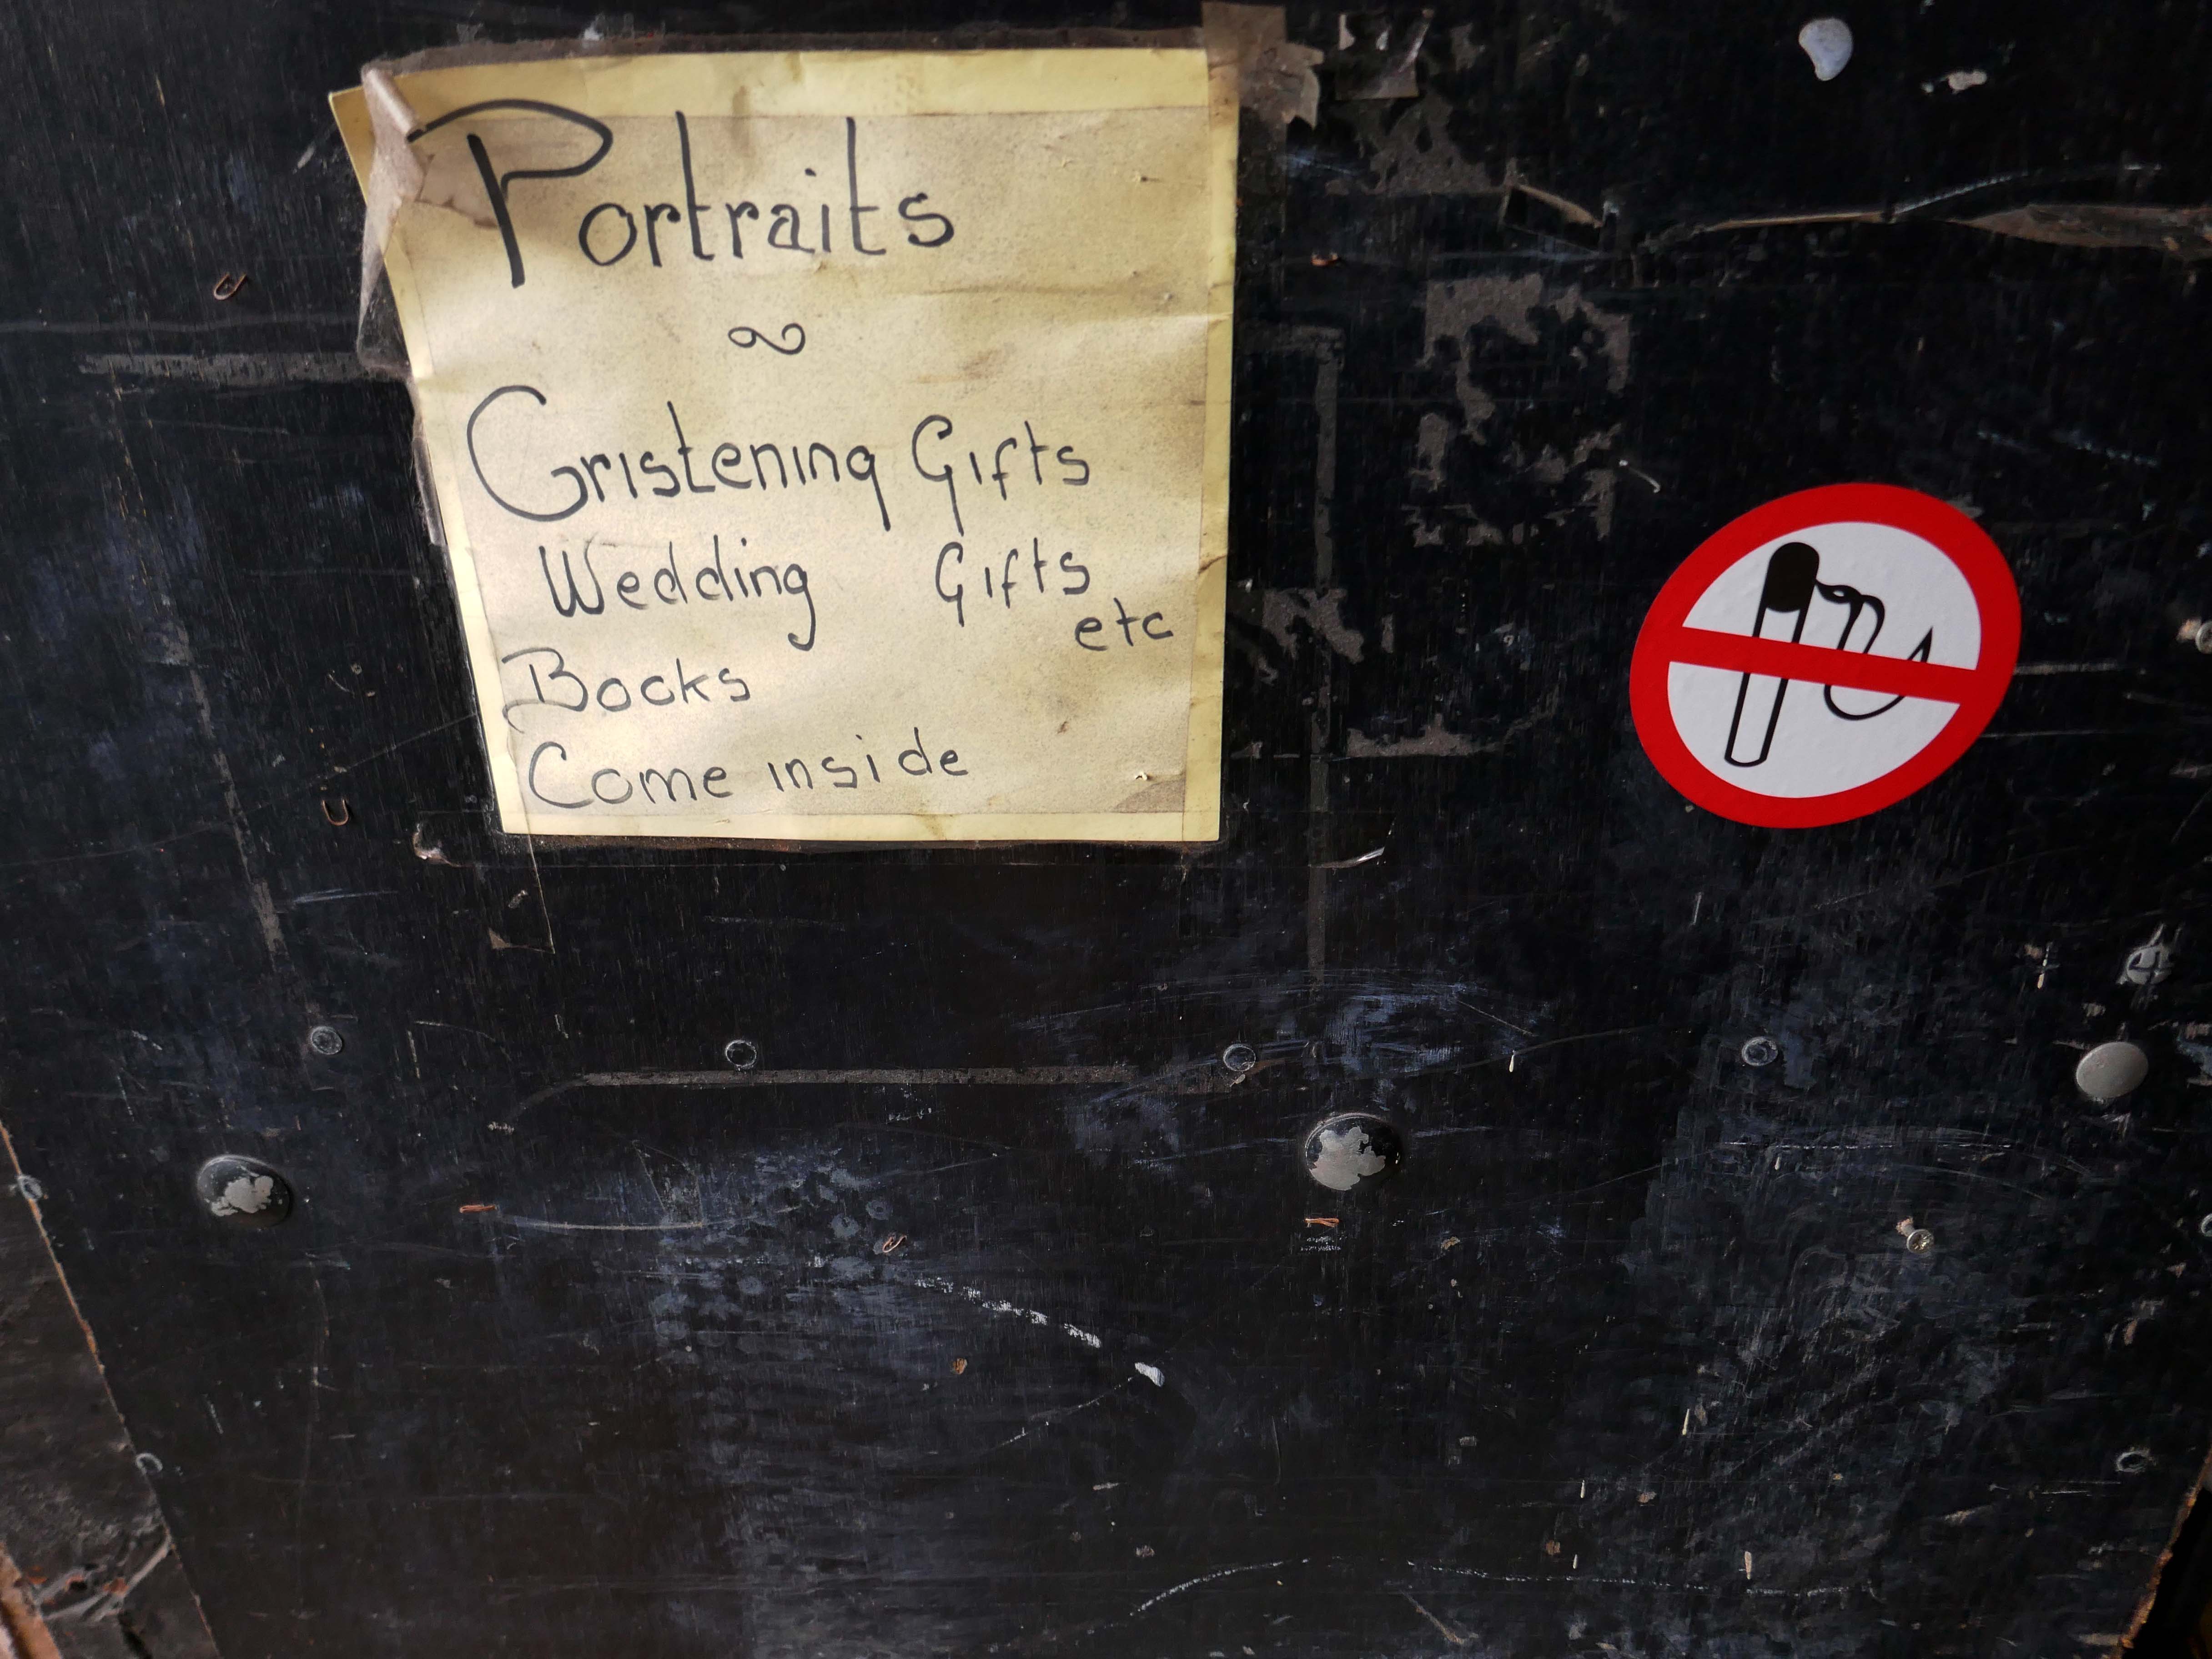 Portraits
Gristening Gifts
Wedding Gifts
etc
Books
Come inside